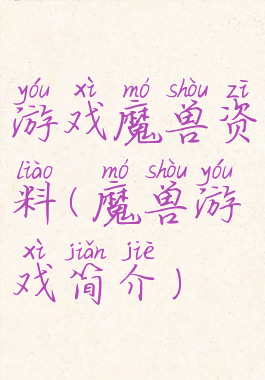 yóu xì mó shòu zī
游戏魔兽资
liào mó shòu yóu
料(魔兽游
xì jiǎn jiè
戏简介)